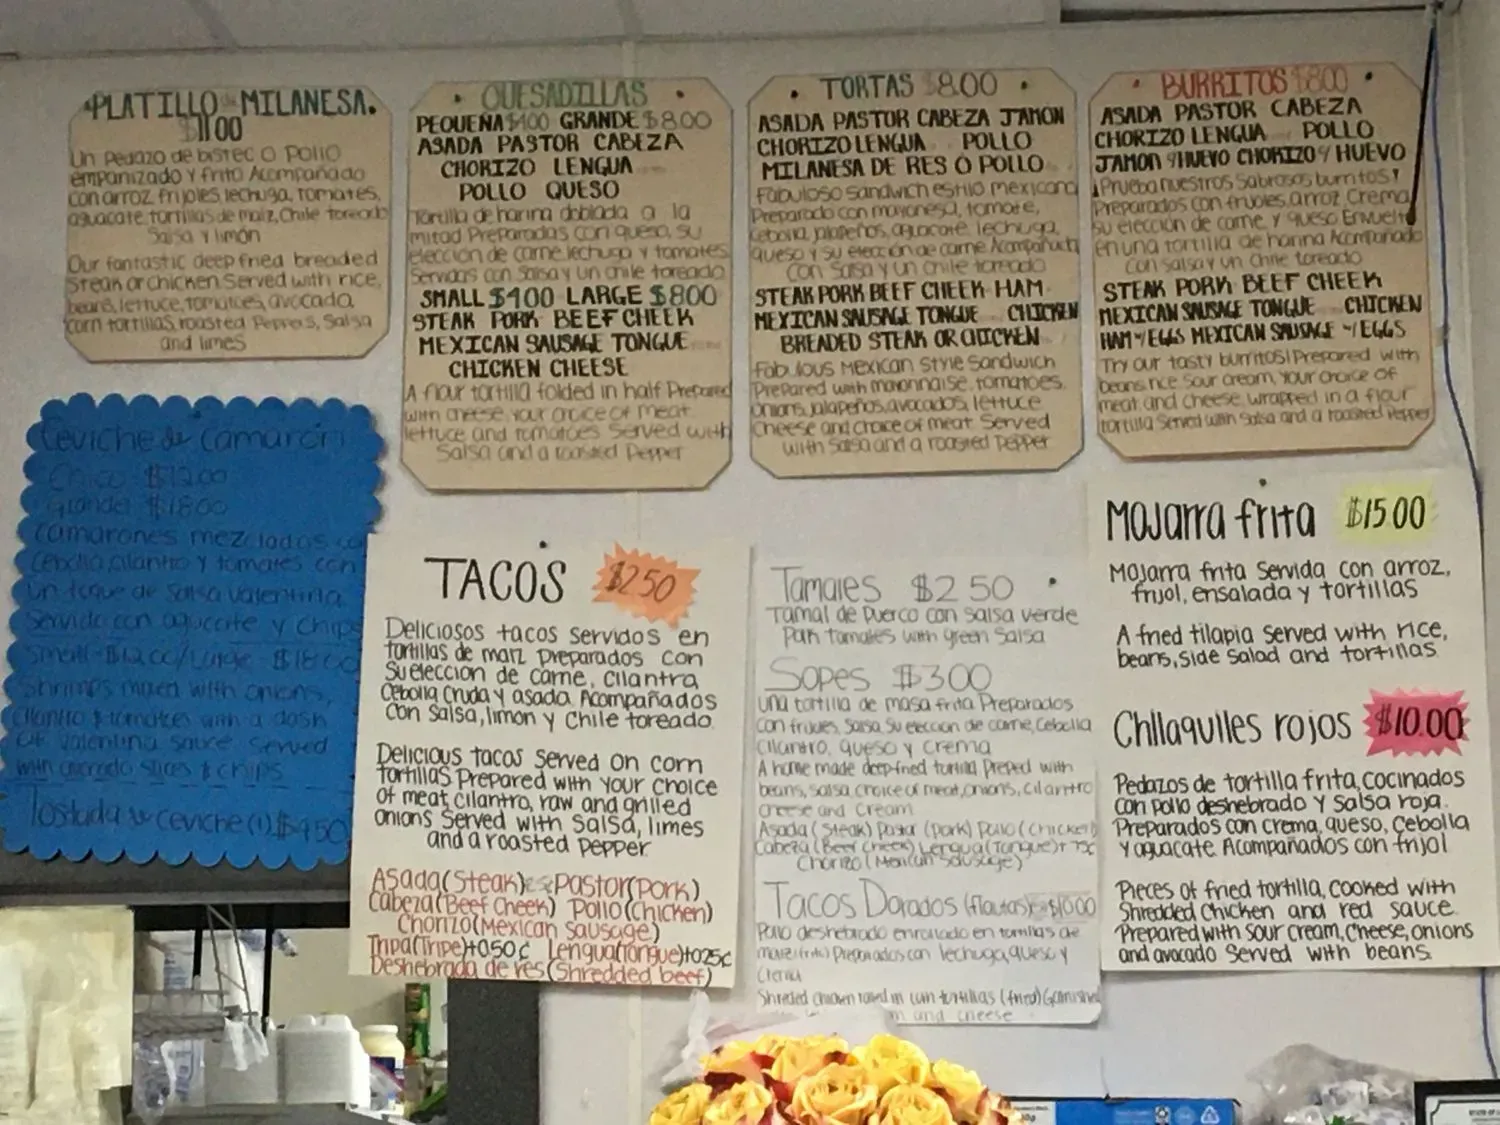 PLATILLO de MILANESA.
$11.00
Un Pedazo de bistec O Pollo
empanizado y frito Acompañado
con arroz frijoles, lechuga, tomates,
aguacate, tortillas de maiz, Chile toreado
Salsa y limón
Our fantastic deep fried breaded
Steak or chicken Served with rice,
beans, lettuce, tomatoes, avocado,
corn tortillas, roasted Peppers, Salsa
and limes
QUESADILLAS
PEQUEÑA $4.00 GRANDE $8.00
ASADA PASTOR CABEZA
CHORIZO LENGUA
POLLO QUESO
Tortilla de harina doblada a la
mitad Preparadas con queso, su
elección de carne, lechuga y tomates
Servidas con Salsa y un chile toreado
SMALL $4.00 LARGE $8.00
STEAK PORK BEEF CHEEK
MEXICAN SAUSAGE TONGUE
CHICKEN CHEESE
A flour tortilla folded in half Prepared
with cheese, your choice of meat
lettuce and tomatoes Served with
Salsa and a roasted Pepper
TORTAS $8.00
ASADA PASTOR CABEZA JAMON
CHORIZO LENGUA POLLO
MILANESA DE RES O POLLO
Fabuloso sandwich estilo mexicano
Preparado con mayonesa, tomate,
Cebolla, jalapeños, aguacate, lechuga,
queso y su elección de carne Acompañada
con Salsa y un chile toreado
STEAK PORK BEEF CHEEK HAM
MEXICAN SAUSAGE TONGUE CHICKEN
BREADED STEAK OR CHICKEN
Fabulous Mexican Style Sandwich
Prepared with mayonnaise, tomatoes,
onions, jalapeños, avocados, lettuce
Cheese and choice of meat Served
with Salsa and a roasted Pepper
BURRITOS $8.00
ASADA PASTOR CABEZA
CHORIZO LENGUA POLLO
JAMON Y HUEVO CHORIZO Y HUEVO
¡Prueba nuestros Sabrosos burritos!
Preparados con frijoles, arroz, Crema,
su elección de carne, y queso Envuelto
en una tortilla de harina Acompañado
Con salsa y un chile toreado
STEAK PORK BEEF CHEEK
MEXICAN SAUSAGE TONGUE CHICKEN
HAM w/EGGS MEXICAN SAUSAGE w/EGGS
Try our tasty burritos! Prepared with
beans, rice, Sour cream, your choice of
meat and cheese wrapped in a flour
tortilla Served with Salsa and a roasted Pepper
Ceviche de Camarón
Chico $12.00
Grande $18.00
Camarones mezclados
cebolla, cilantro y tomates con
un toque de Salsa valentina
Servido con aguacate y Chips
Small $12.00/Large $18.00
Shrimps mixed with onions,
cilantro & tomatoes with a dash
of valentina sauce. Served
with avocado slices & chips
Tostada de ceviche (1) $4.50
TACOS $2.50
Deliciosos tacos servidos en
tortillas de maiz Preparados con
Su eleccion de carne, cilantra,
Cebolla Cruda y asada. Acompañados
con Salsa, limon y Chile toreado.
Delicious tacos Served on corn
tortillas Prepared with your choice
of meat, cilantro, raw and grilled
onions Served with Salsa, limes
and a roasted Pepper
Asada (Steak) Pastor (Pork)
Cabeza (Beef Cheek) Pollo (Chicken)
Chorizo (Mexican Sausage)
Tripa (Tripe) +0.50¢ Lengua (Tongue) +0.25¢
Deshebrada de res (Shredded beef)
Tamales $2.50
Tamal de Puerco con Salsa verde
Pork tamales with green Salsa
Sopes $3.00
Una tortilla de masa frita Preparados
con frijoles, Salsa, Su eleccion de carne, Cebolla
Cilantro, queso y crema
A home made deep-fried tortilla Preped with
beans, salsa, choice of meat, onions, cilantro
cheese and Cream
Asada (Steak) Pastor (Pork) Pollo (Chicken)
Cabeza (Beef Cheek) Lengua (Tongue) + 75¢
Chorizo (Mexican Sausage)
Tacos Dorados (flautas) $10.00
Pollo deshebrado enrollado en tortillas de
maiz (frito) Preparados con lechuga, queso y
Crema
Shreded chicken rolled in corn tortillas (fried) Garnished
and cheese
Mojarra frita $15.00
Mojarra frita Servida con arroz,
frijol, ensalada y tortillas
A fried tilapia Served with rice,
beans, side Salad and tortillas.
Chilaquiles rojos $10.00
Pedazos de tortilla frita, cocinados
con pollo deshebrado y Salsa roja.
Preparados con crema, queso, Cebolla
y aguacate. Acompañados con frijol
Pieces of fried tortilla, cooked with
Shredded Chicken and red sauce.
Prepared with sour cream, Cheese, onions
and avocado Served with beans.